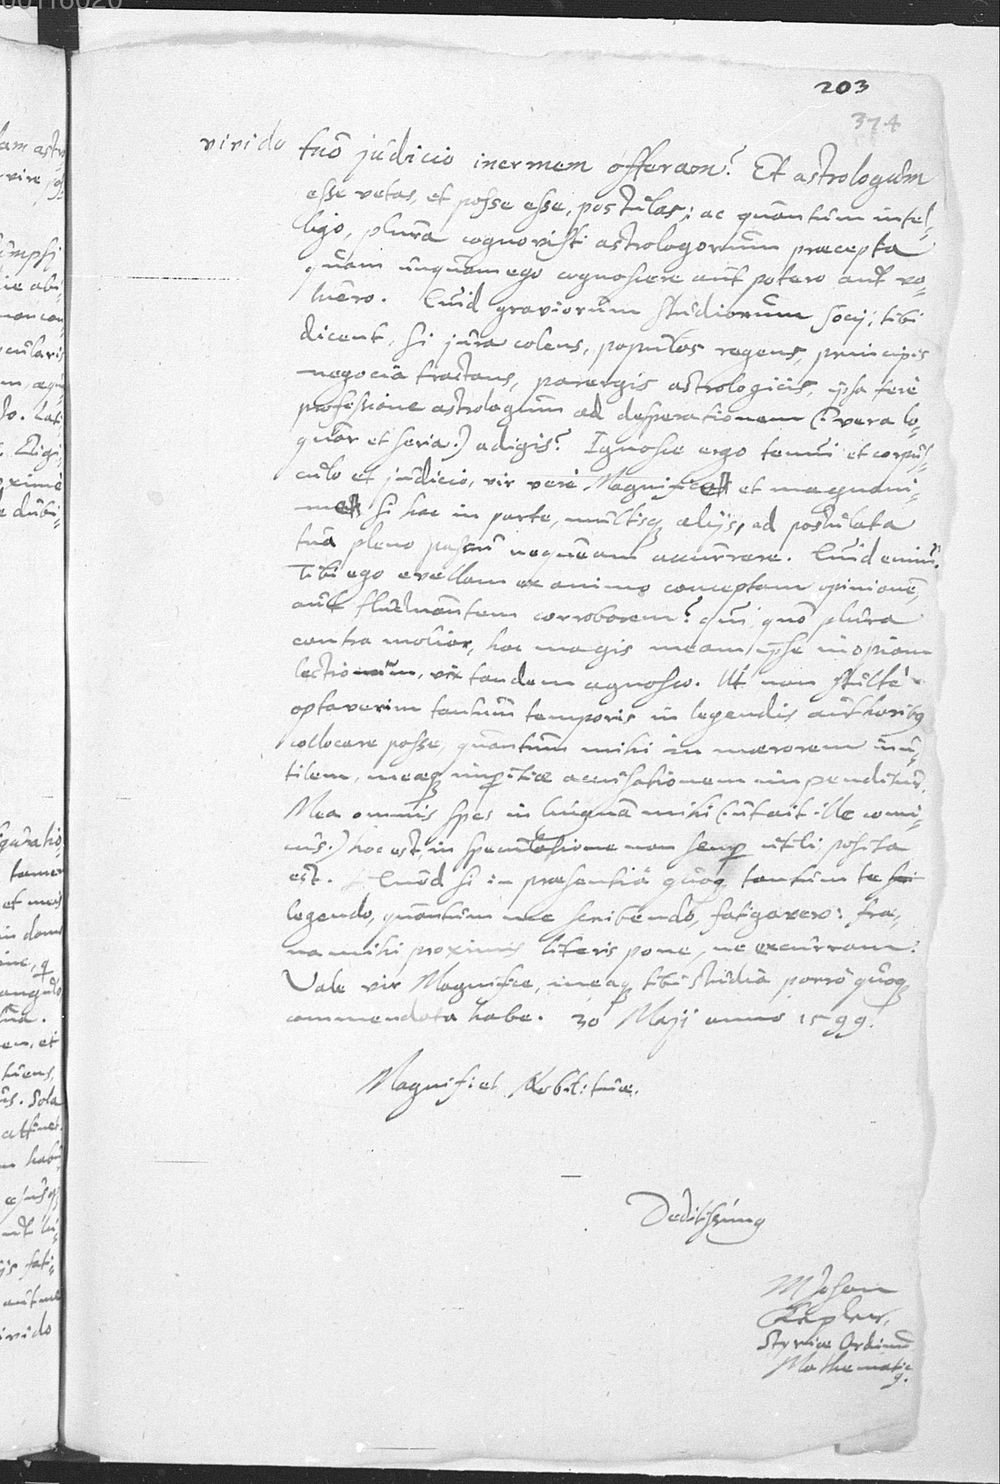 203
374
vivido
tuo judicio inermem offeram? Et astrologum
esse vetas, et posse esse, postulas; ac quantum intel-
ligo, plura cognovisti astrologorum praecepta
quam unquam ego cognoscere aut potero aut vo-
luero. Quid graviorum studiorum socij, tibi
dicent, si jura colens, populos regens, principis
negocia tractans, parergis astrologicis, ipsa fere
professione astrologum ad desperationem (: vera lo-
quor et seria :) adigis? Ignosce ergo tenui et corpus-
culo et judicio, vir vere Magnifice et magnani-
me si hac in parte, multisq alijs, ad postulata
tua pleno passu nequeam accurrere. Quid enim?
Tibi ego evellam ex animo conceptam opinionem,
aut fluctuantem corroborem? qui, quo plura
contra molior, hoc magis meam ipse inopiam
lectionum, vix tandem agnosco. Ut non stulte
optaverim tantum temporis in legendis authoribq
collocare posse, quantum mihi in maerorem inu-
tilem, meaeq imperitiae accusationem impenditur.
Mea omnis spes in lingua mihi (: ut ait ille comi-
cus :) hoc est, in speculatione non semp utili, posita
est. Quod si in praesentia quoq tantum te
legendo, quantum me scribendo, fatigavero: fra-
na mihi proximis literis pone, ne excurram.
Vale vir Magnifice, meaq tibi studia porro quoq
commendata habe. 30 Maji anno 1599.
Magnif: et Nobilit: tuae.
Deditissimq
M Johan
Kepler,
Styriae Ordinum
Mathematicq.